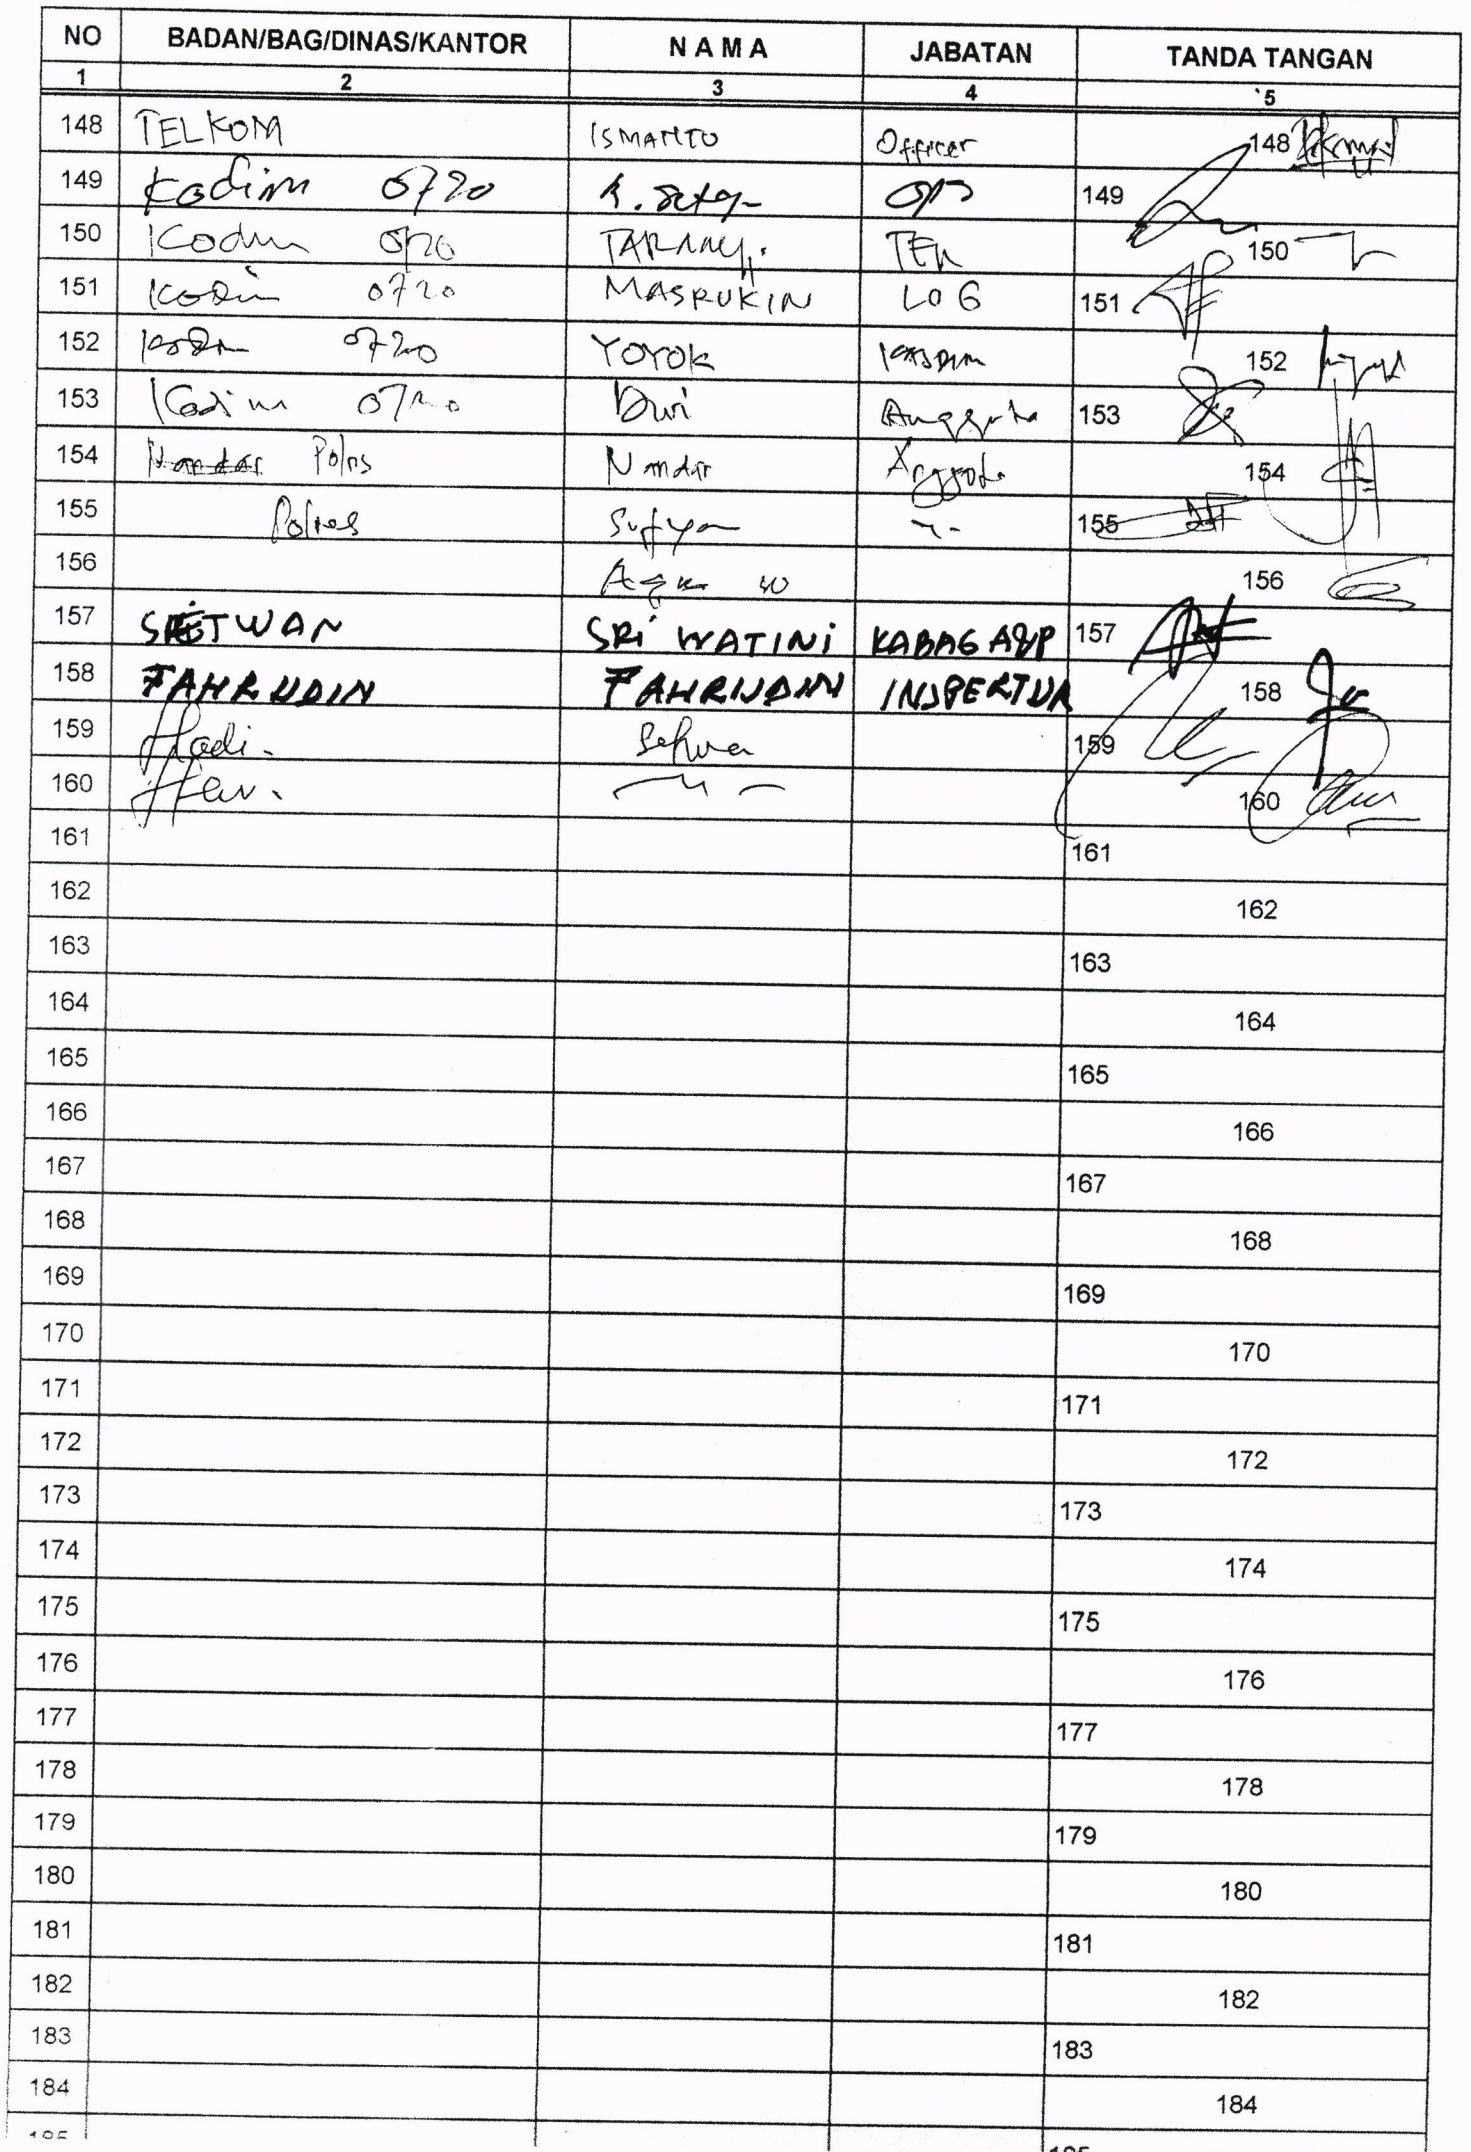 NO BADAN/BAG/DINAS/KANTOR N A M A JABATAN TANDA TANGAN
1 2 3 4 `5
148 TELKOM ISMANTO Officer 148
149 Kodim 0720 149
150 Kodim 0720 TER 150
151 Kodim 0720 MASRUKIN LOG 151
152 Kodim 0720 YOYOK KASDIM 152
153 Kodim 0720 Anggota 153
154 Nandar Polres Nandar Anggota 154
155 Polres 155
156 156
157 SETWAN SRi WATINi KABAG 157
158 FAHRUDIN FAHRUDIN INSPEKTUR 158
159 Hadi. 159
160 160
161 161
162 162
163 163
164 164
165 165
166 166
167 167
168 168
169 169
170 170
171 171
172 172
173 173
174 174
175 175
176 176
177 177
178 178
179 179
180 180
181 181
182 182
183 183
184 184